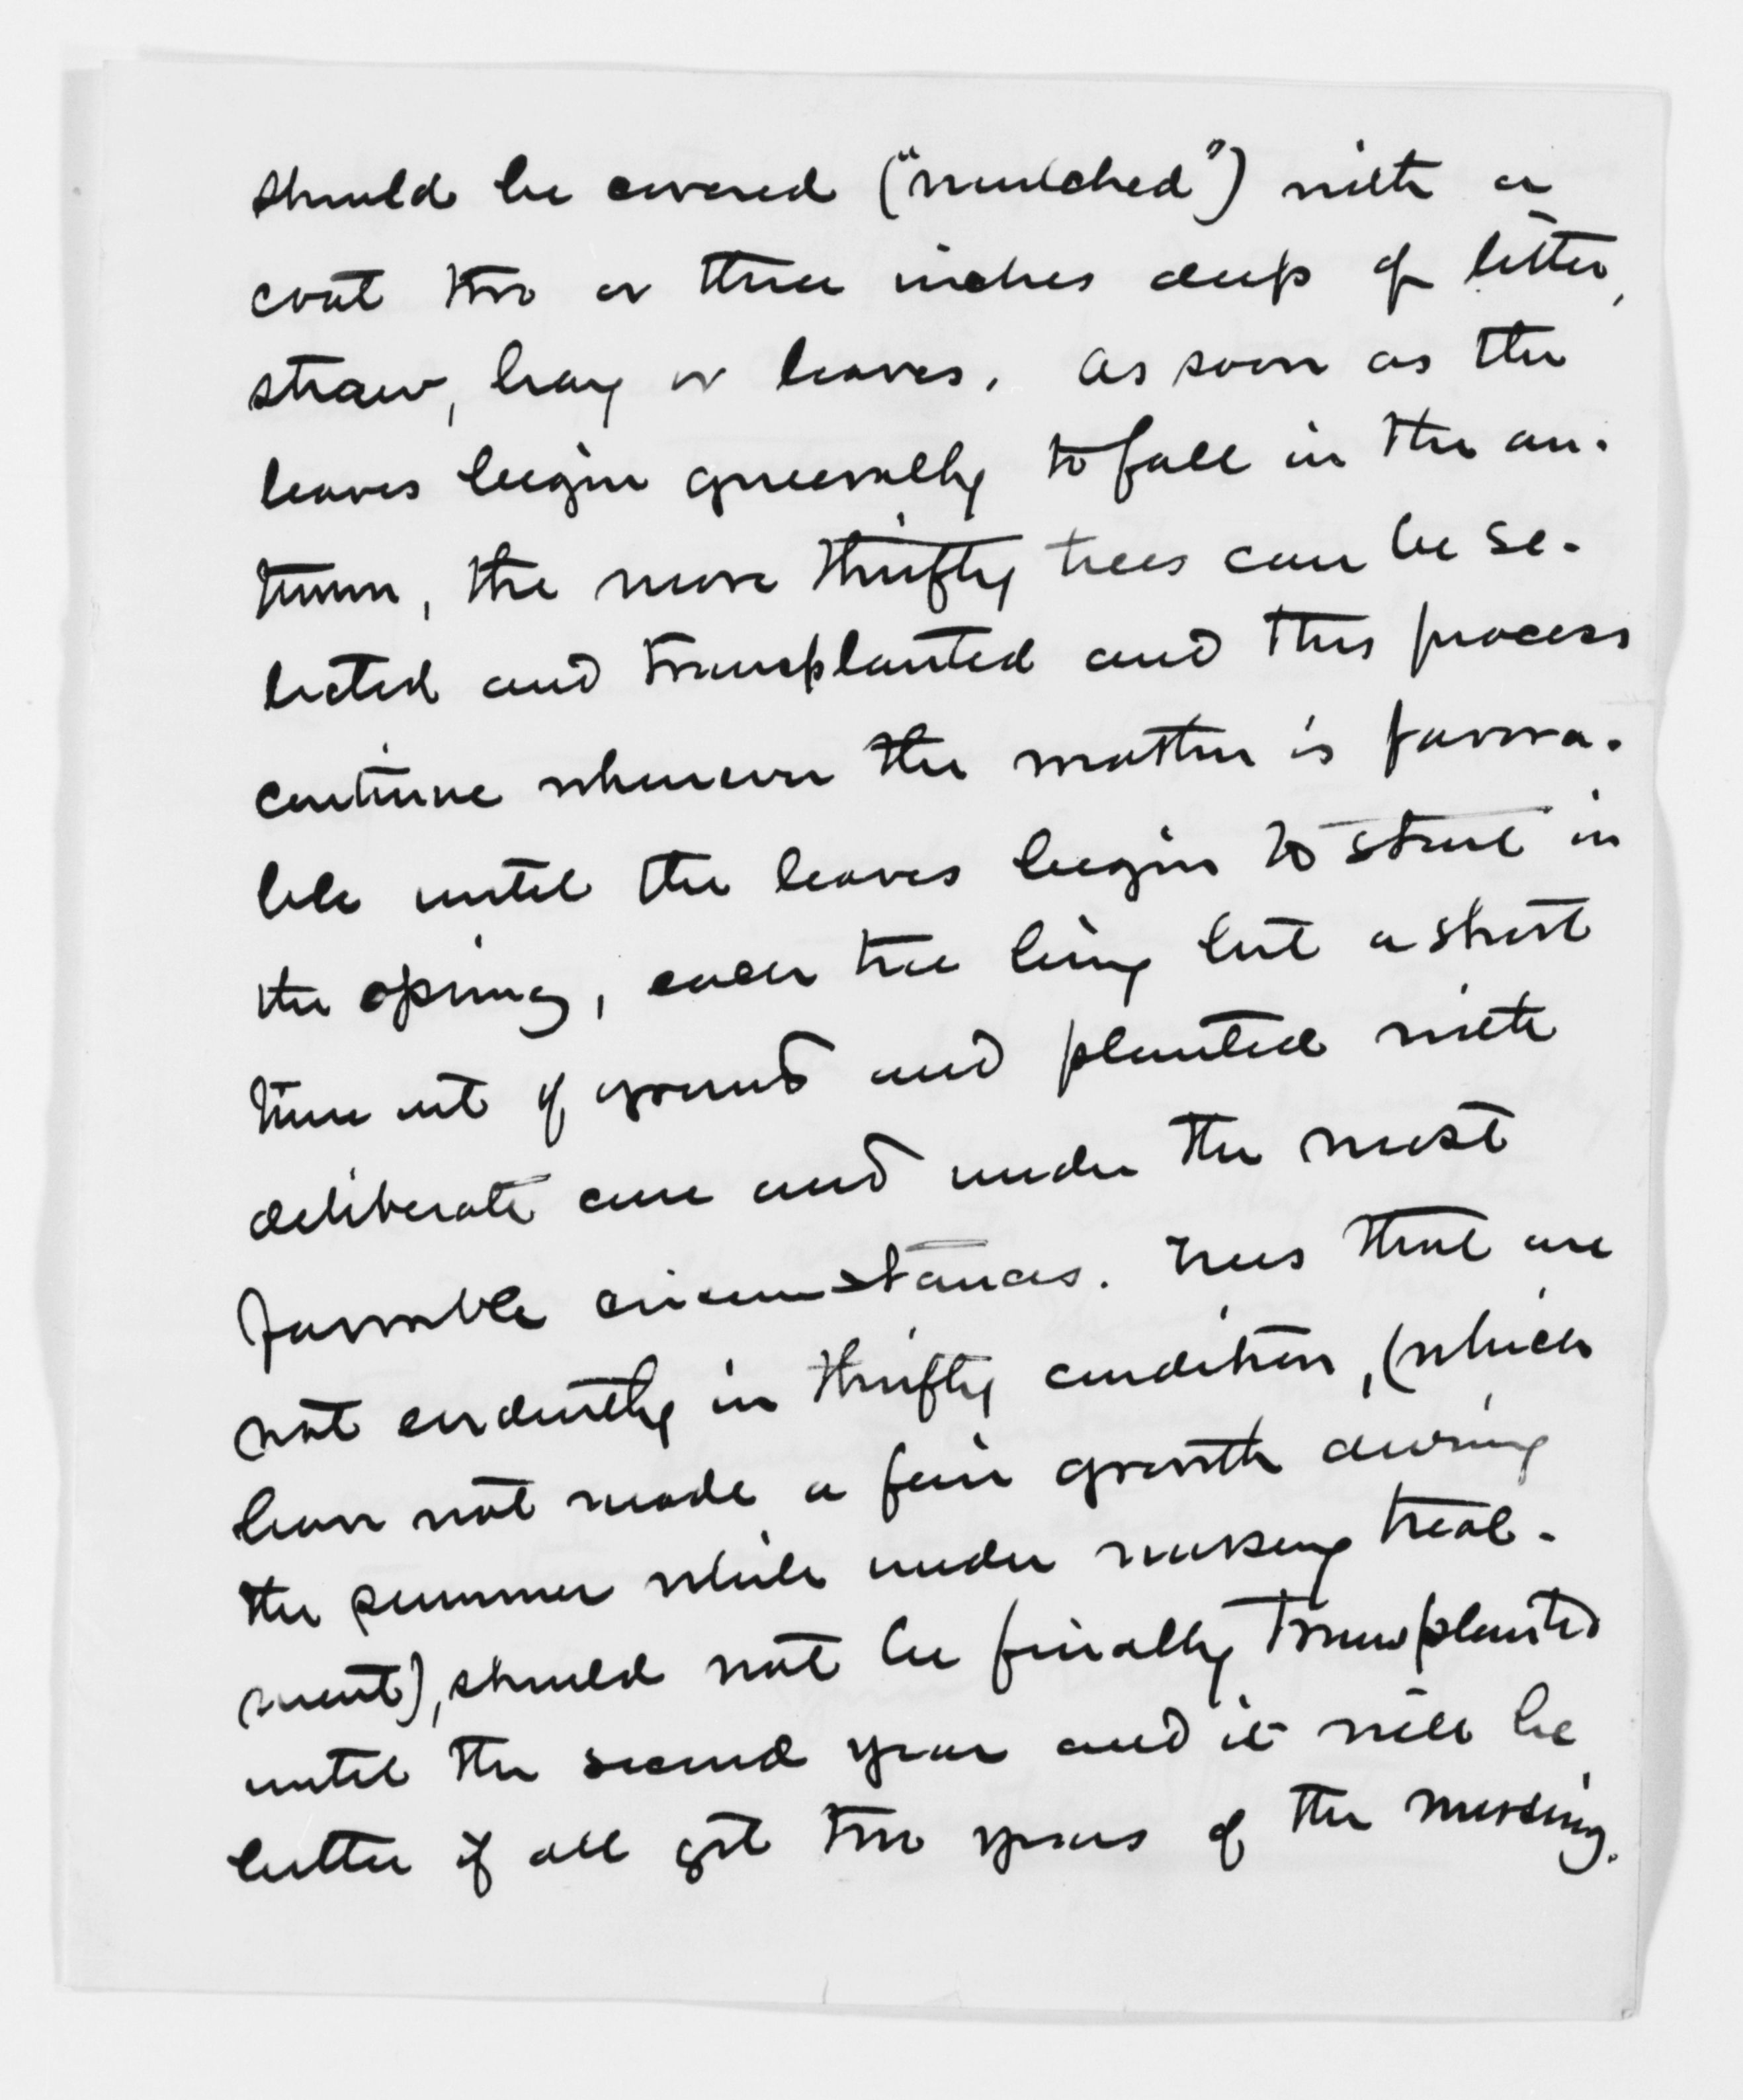 should be covered ("mulched") with a
coat two or three inches deep of litter,
straw, hay or leaves. As soon as the
leaves begin generally to fall in the au-
tumn, the more thrifty trees can be se-
lected and transplanted and this process
continue whenever the weather is favora-
ble until the leaves begin to start in
the spring, each tree being but a short
time out of ground and planted with
deliberate care and under the most
favorable circumstances. Trees that are
not evidently in thrifty condition, (which
have not made a fair growth during
the summer while under nursing treat-
ment), should not be finally transplanted
until the second year and it will be
better if all get two years of the nursing.